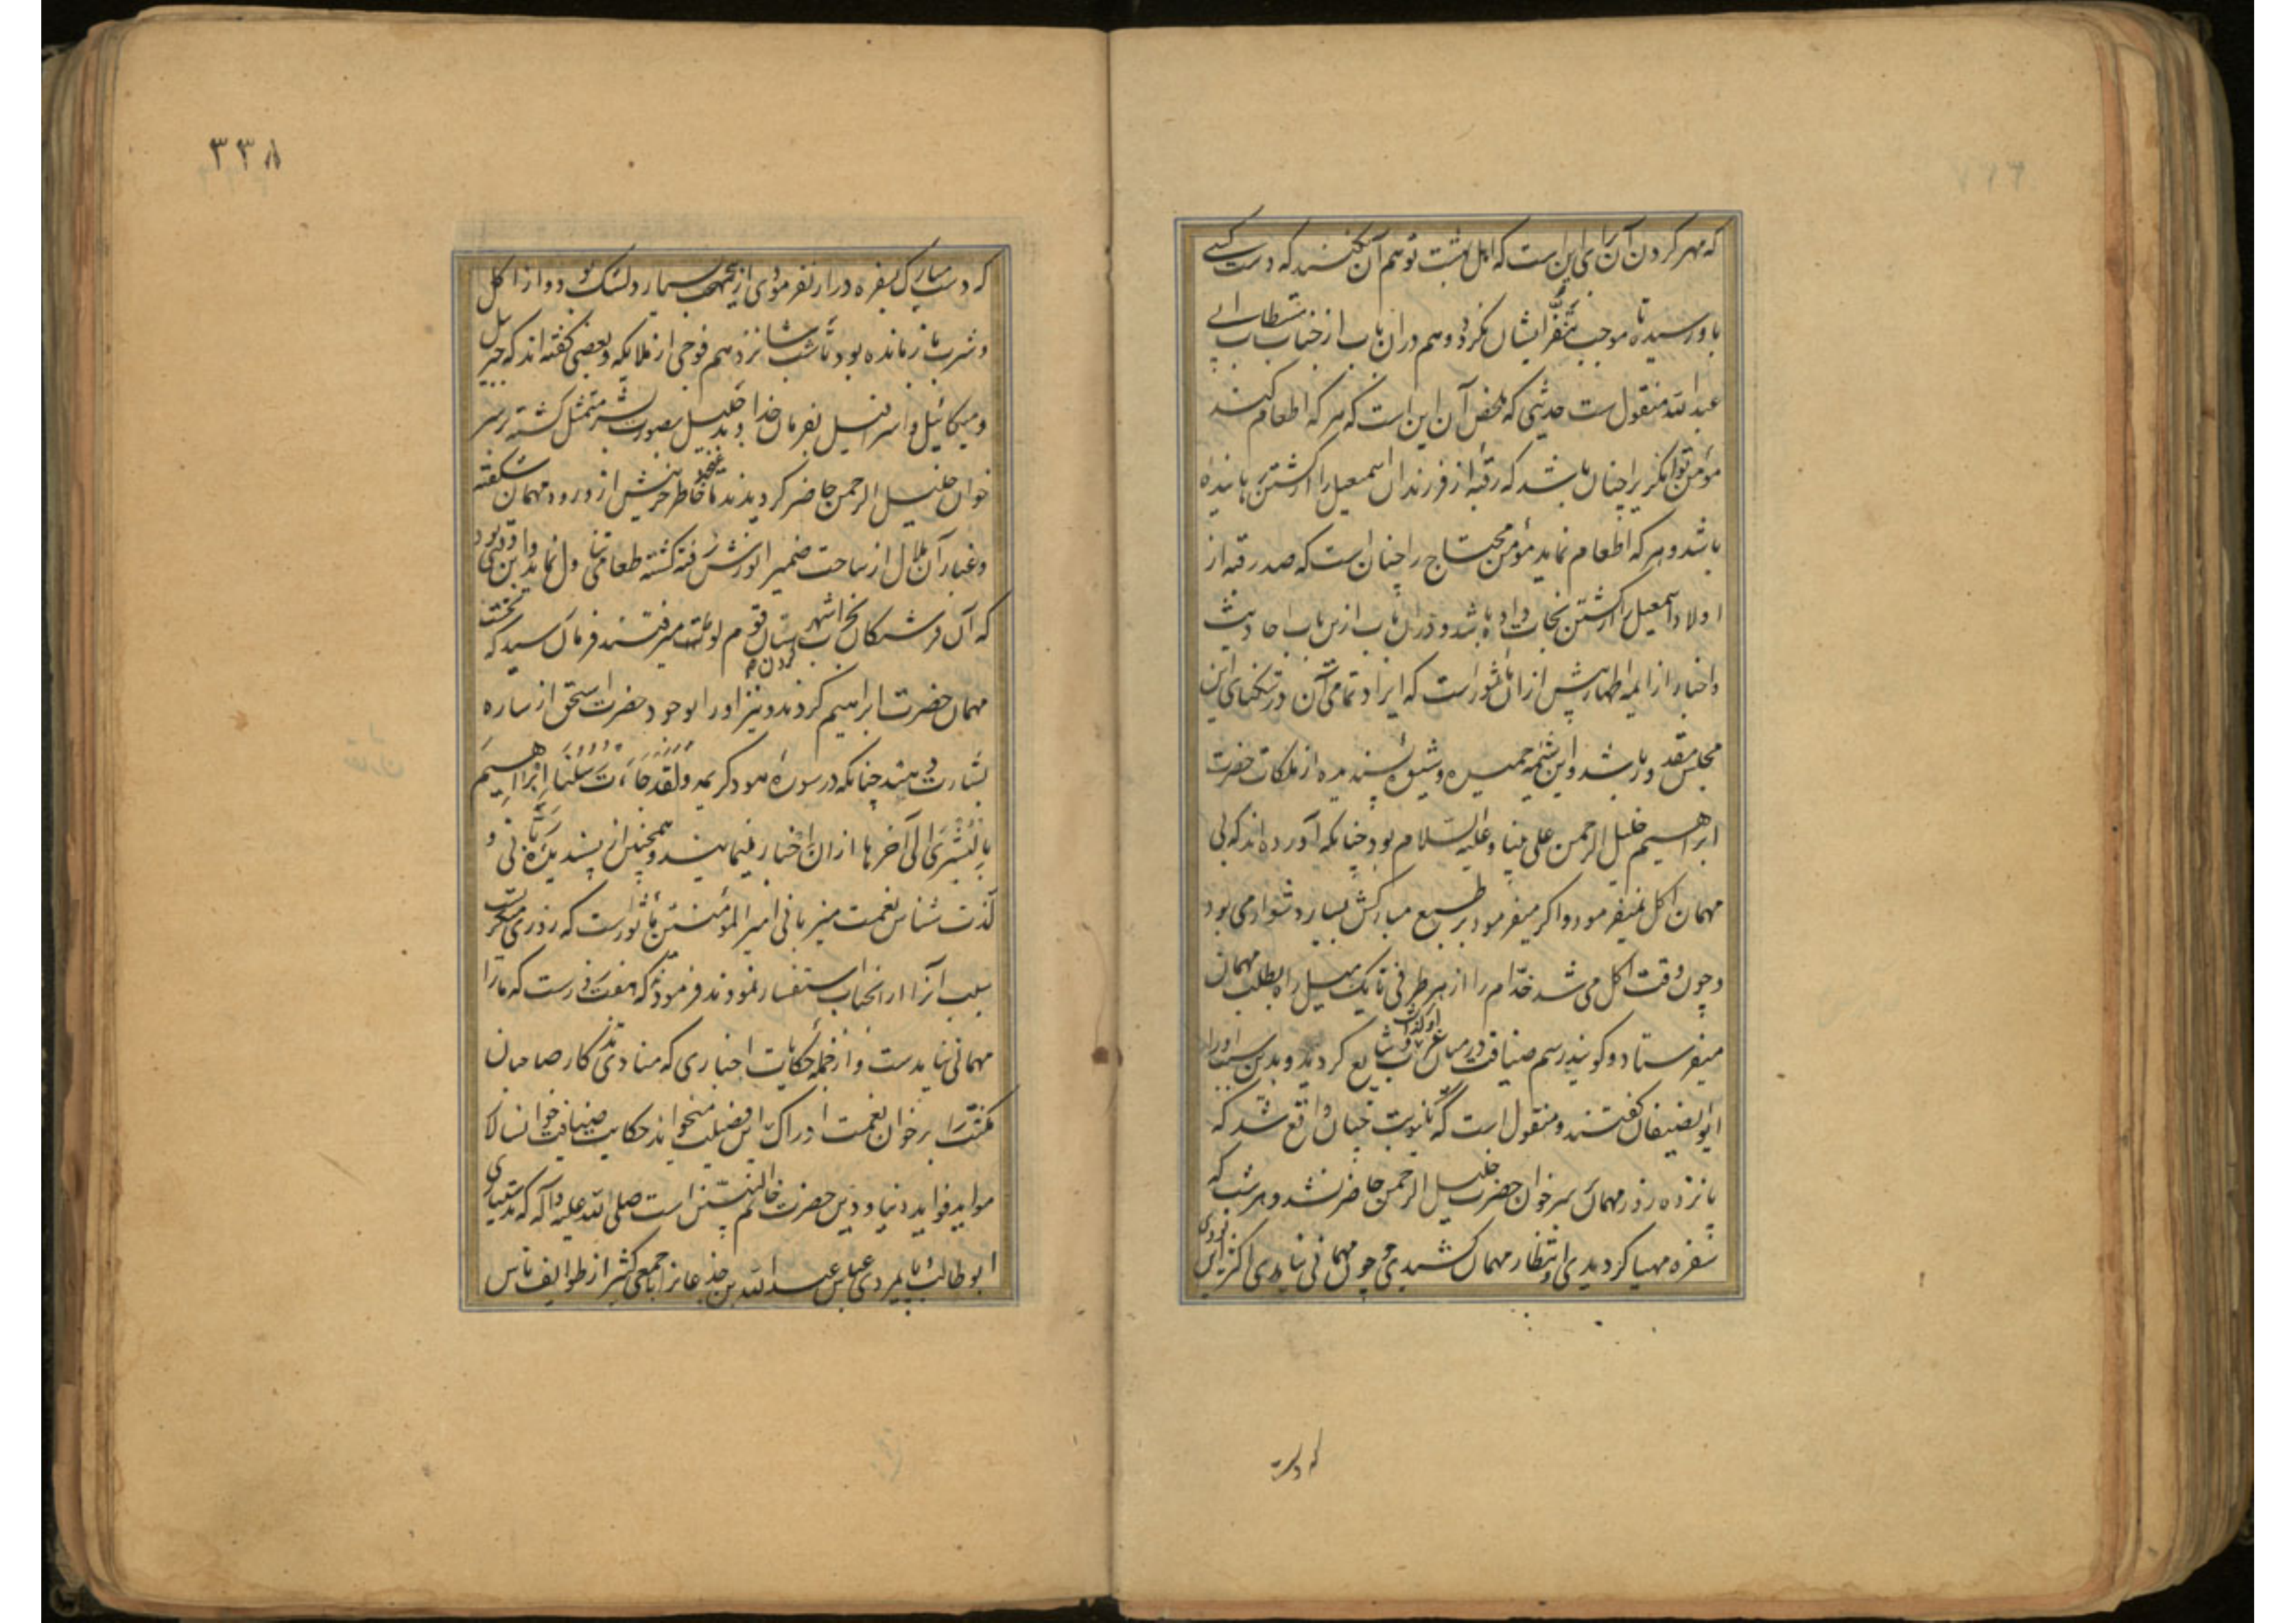 که مهر کردن آن برای این است که اهل بیت توهم آن نکنند که دست کسی
باو رسیده تا موجب تنفر ایشان نگردد و هم در آن باب از جناب مستطاب ابی
عبدالله منقول ست حدیثی که ملخص آن این است که هر که اطعام کند
مؤمن توانگریرا چنان باشد که رقبهٔ از فرزندان اسمعیل را از کشتن رهانیده
باشد و هر که اطعام نماید مؤمن محتاج را چنان است که صد رقبه از
اولاد اسمعیل را از کشتن نجات داده باشد و در آن باب ازین باب احادیث
و اخبار از ایمه اطهار پیش از آن ماثور است که ایراد تمامی آن در تنکنای این
مجلس مقدور باشد و این شیمه حمیده و شیوهٔ پسندیده از ملکات حضرت
ابراهیم خلیل الرحمن علی نبینا و علیه السلام بود چنانکه آورده اند که بی
مهمان اکل نمیفرمود و اگر میفرمود بر طبع مبارکش بسیار دشوار می بود
و چون وقت اکل می شد خدام را از هر طرفی تا یک میل راه بطلب مهمان
میفرستاد و کویند رسم ضیافت در میان عرب او شایع کردید و بدین سبب او را
ابو الضیفان گفتند و منقول است که نوبت چنان واقع شد که
پانزده روز مهمان بر سر خوان حضرت خلیل الرحمن حاضر نشد و هر شب که
سفره مهیا کردیدی و انتظار مهمان کشیدی و چون مهمانی نیامدی اکثر این بودی
که دست
۳۳۸
که دست مبارک بسفره دراز نفرمودی ازینجهت بسیار دلتنگ بود و از اکل
و شرب باز مانده بود تا شب شانزدهم فوجی از ملایکه و بعضی گفته اند که جبرئیل
و میکائیل و اسرافیل بفرمان خداوند جلیل بصورت بشر متمثل گشته بر سر
خوان خلیل الرحمن حاضر گردیدند تا غنچه خاطر حزینش از ورود مهمان شکفته
و غبار آن ملال از ساحت ضمیر انورش رفته گشته طعامی تناول نماید و این وقتی بود
که آن فرشتگان بخراب کردن شهرستان قوم لوط میرفتند فرمان رسید که نخست
مهمان حضرت ابراهیم کردند و نیز او را بوجود حضرت اسحق از ساره
بشارت دهند چنانکه در سورهٔ هود کریمه ولقد جاءت رسلنا ابراهیم
بالبشری الی آخرها از آن اخبار مینماید و همچنین از پسندیده بانی و
لذت شناس نعمت میزبانی امیر المؤمنین ماثور است که روزی میکریست
سبب آنرا از آنجناب استفسار نمودند فرمودند که هفت روز است که ما را
مهمانی نیامدست و از جمله حکایات اخباری که منادی کار صاحبان
مکنت را بر خوان نعمت ادراک این فضیلت میخواند حکایت ضیافت خوانسالار
مواید فواید دنیا و دین حضرت خاتم النبیین است صلی الله علیه و آله که بدستیاری
ابو طالب و پایمردی عباس عبدالله بن جذعانرا با جمعی کثیر از طوایف ناس